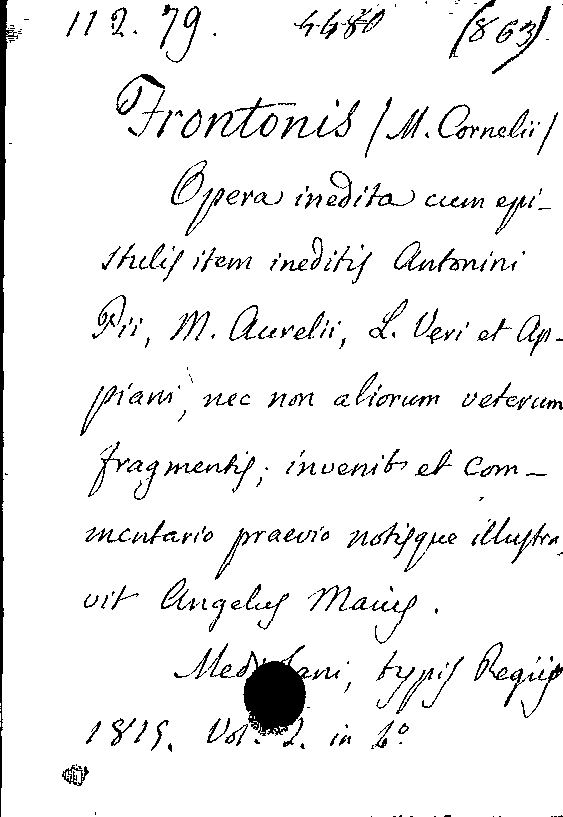 112. 79. 4480 (863)
Frontonis / M. Cornelii /
Opera inedita cum epi-
stulis item ineditis Antonini
Pii, M. Aurelii, L. Veri et Ap-
piani, nec non aliorum veterum
fragmentis; invenit et com-
mentario praevio notisque illustra
vit Angelus Maius.
Mediolani, typis Regiis
1815. Vol. 2. in